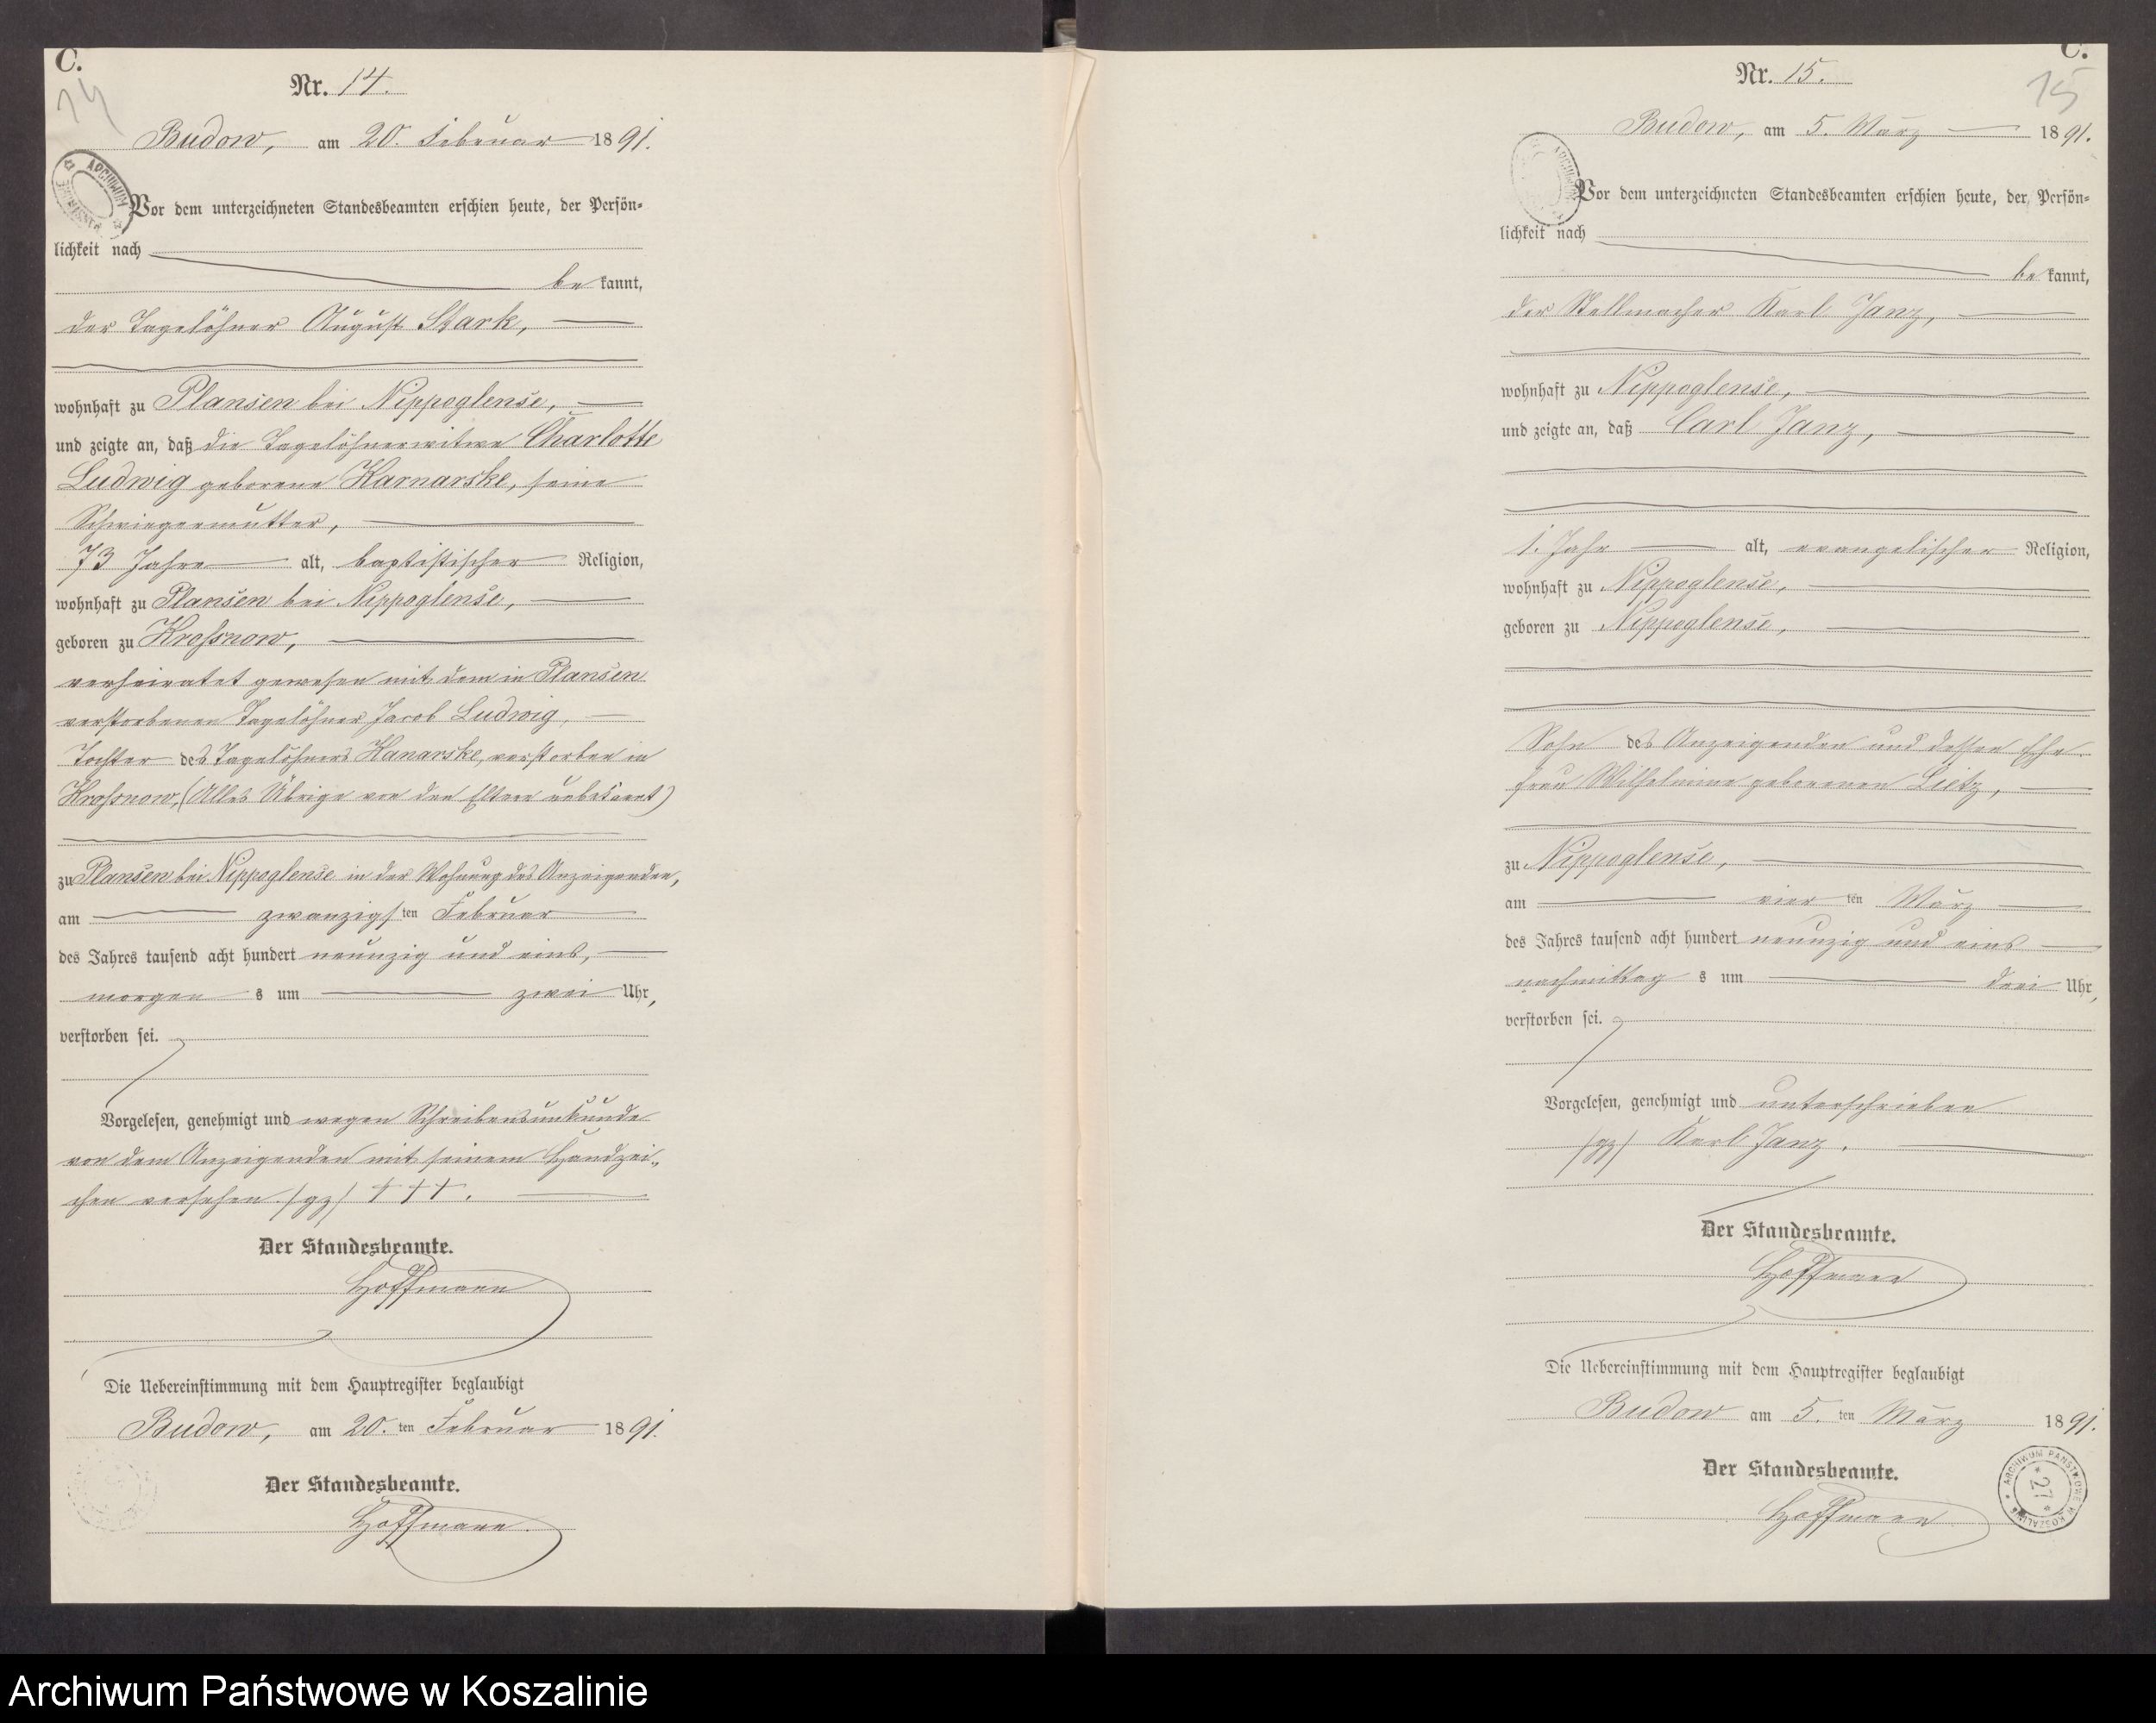 C.
14
Nr. 14.
Budow, am 20. Februar 1891.
Vor dem unterzeichneten Standesbeamten erschien heute, der Persön-
lichkeit nach
be kannt,
der Tagelöhner August Stark,
wohnhaft zu Plansen bei Nippoglense,
und zeigte an, daß die Tagelöhnerwitwe Charlotte
Ludwig geborene Karnarske, seine
Schwiegermutter,
73 Jahre alt, baptistischer Religion,
wohnhaft zu Plansen bei Nippoglense,
geboren zu Krossnow,
verheiratet gewesen mit dem in Plansen
verstorbenen Tagelöhner Jacob Ludwig,
Tochter des Tagelöhners Kanarske, verstorben in
Krossnow, (Alles Übrige von den Eltern unbekannt)
zu Plansen bei Nippoglense in der Wohnung des Anzeigenden,
am zwanzigsten Februar
des Jahres tausend acht hundert neunzig und eins,
morgen s um zwei Uhr,
verstorben sei.
Vorgelesen, genehmigt und wegen Schreibensunkunde
von dem Anzeigenden mit seinem Handzei-
chen versehen. /gz/ † † †.
Der Standesbeamte.
Hoffmann
Die Uebereinstimmung mit dem Hauptregister beglaubigt
Budow, am 20. ten Februar 1891.
Der Standesbeamte.
Hoffmann.
C.
15
Nr. 15.
Budow, am 5. März 1891.
Vor dem unterzeichneten Standesbeamten erschien heute, der Persön-
lichkeit nach
be kannt,
der Stellmacher Karl Janz,
wohnhaft zu Nippoglense,
und zeigte an, daß Carl Janz,
1. Jahr alt, evangelischer Religion,
wohnhaft zu Nippoglense,
geboren zu Nippoglense,
Sohn des Anzeigenden und dessen Ehe-
frau Wilhelmine geborenen Lietz,
zu Nippoglense,
am vier ten März
des Jahres tausend acht hundert neunzig und eins
nachmittag s um drei Uhr,
verstorben sei.
Vorgelesen, genehmigt und unterschrieben
/gz/ Karl Janz.
Der Standesbeamte.
Hoffmann
Die Uebereinstimmung mit dem Hauptregister beglaubigt
Budow am 5. ten März 1891.
Der Standesbeamte.
Hoffmann
ARCHIWUM PAŃSTWOWE W KOSZALINIE
27
Archiwum Państwowe w Koszalinie